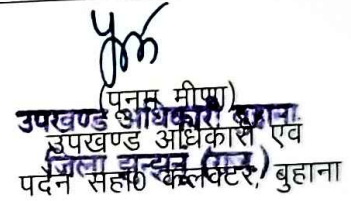 (पूनम मीणा)
उपखण्ड अधिकारी बुहाना
उपखण्ड अधिकारी एवं
जिला झुन्झुनू (राज.)
पदेन सहा0 कलेक्टर, बुहाना